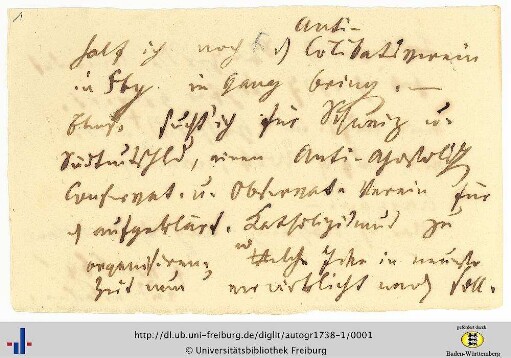 1
Anti-
half ich noch d Cölibatsverein
in Fbg. in Gang bring. —
Ebenso sucht ich für Schweiz u.
Südteutschld, einen Anti-Apostolisch
Conservat. u. Observat. Verein für
d aufgeklärt. Katholizismus zu
organisiren, welche Idee in neuester
Zeit nun verwirklicht werd soll.
http://dl.ub.uni-freiburg.de/diglit/autogr1738-1/0001
© Universitätsbibliothek Freiburg
gefördert durch
Baden-Württemberg